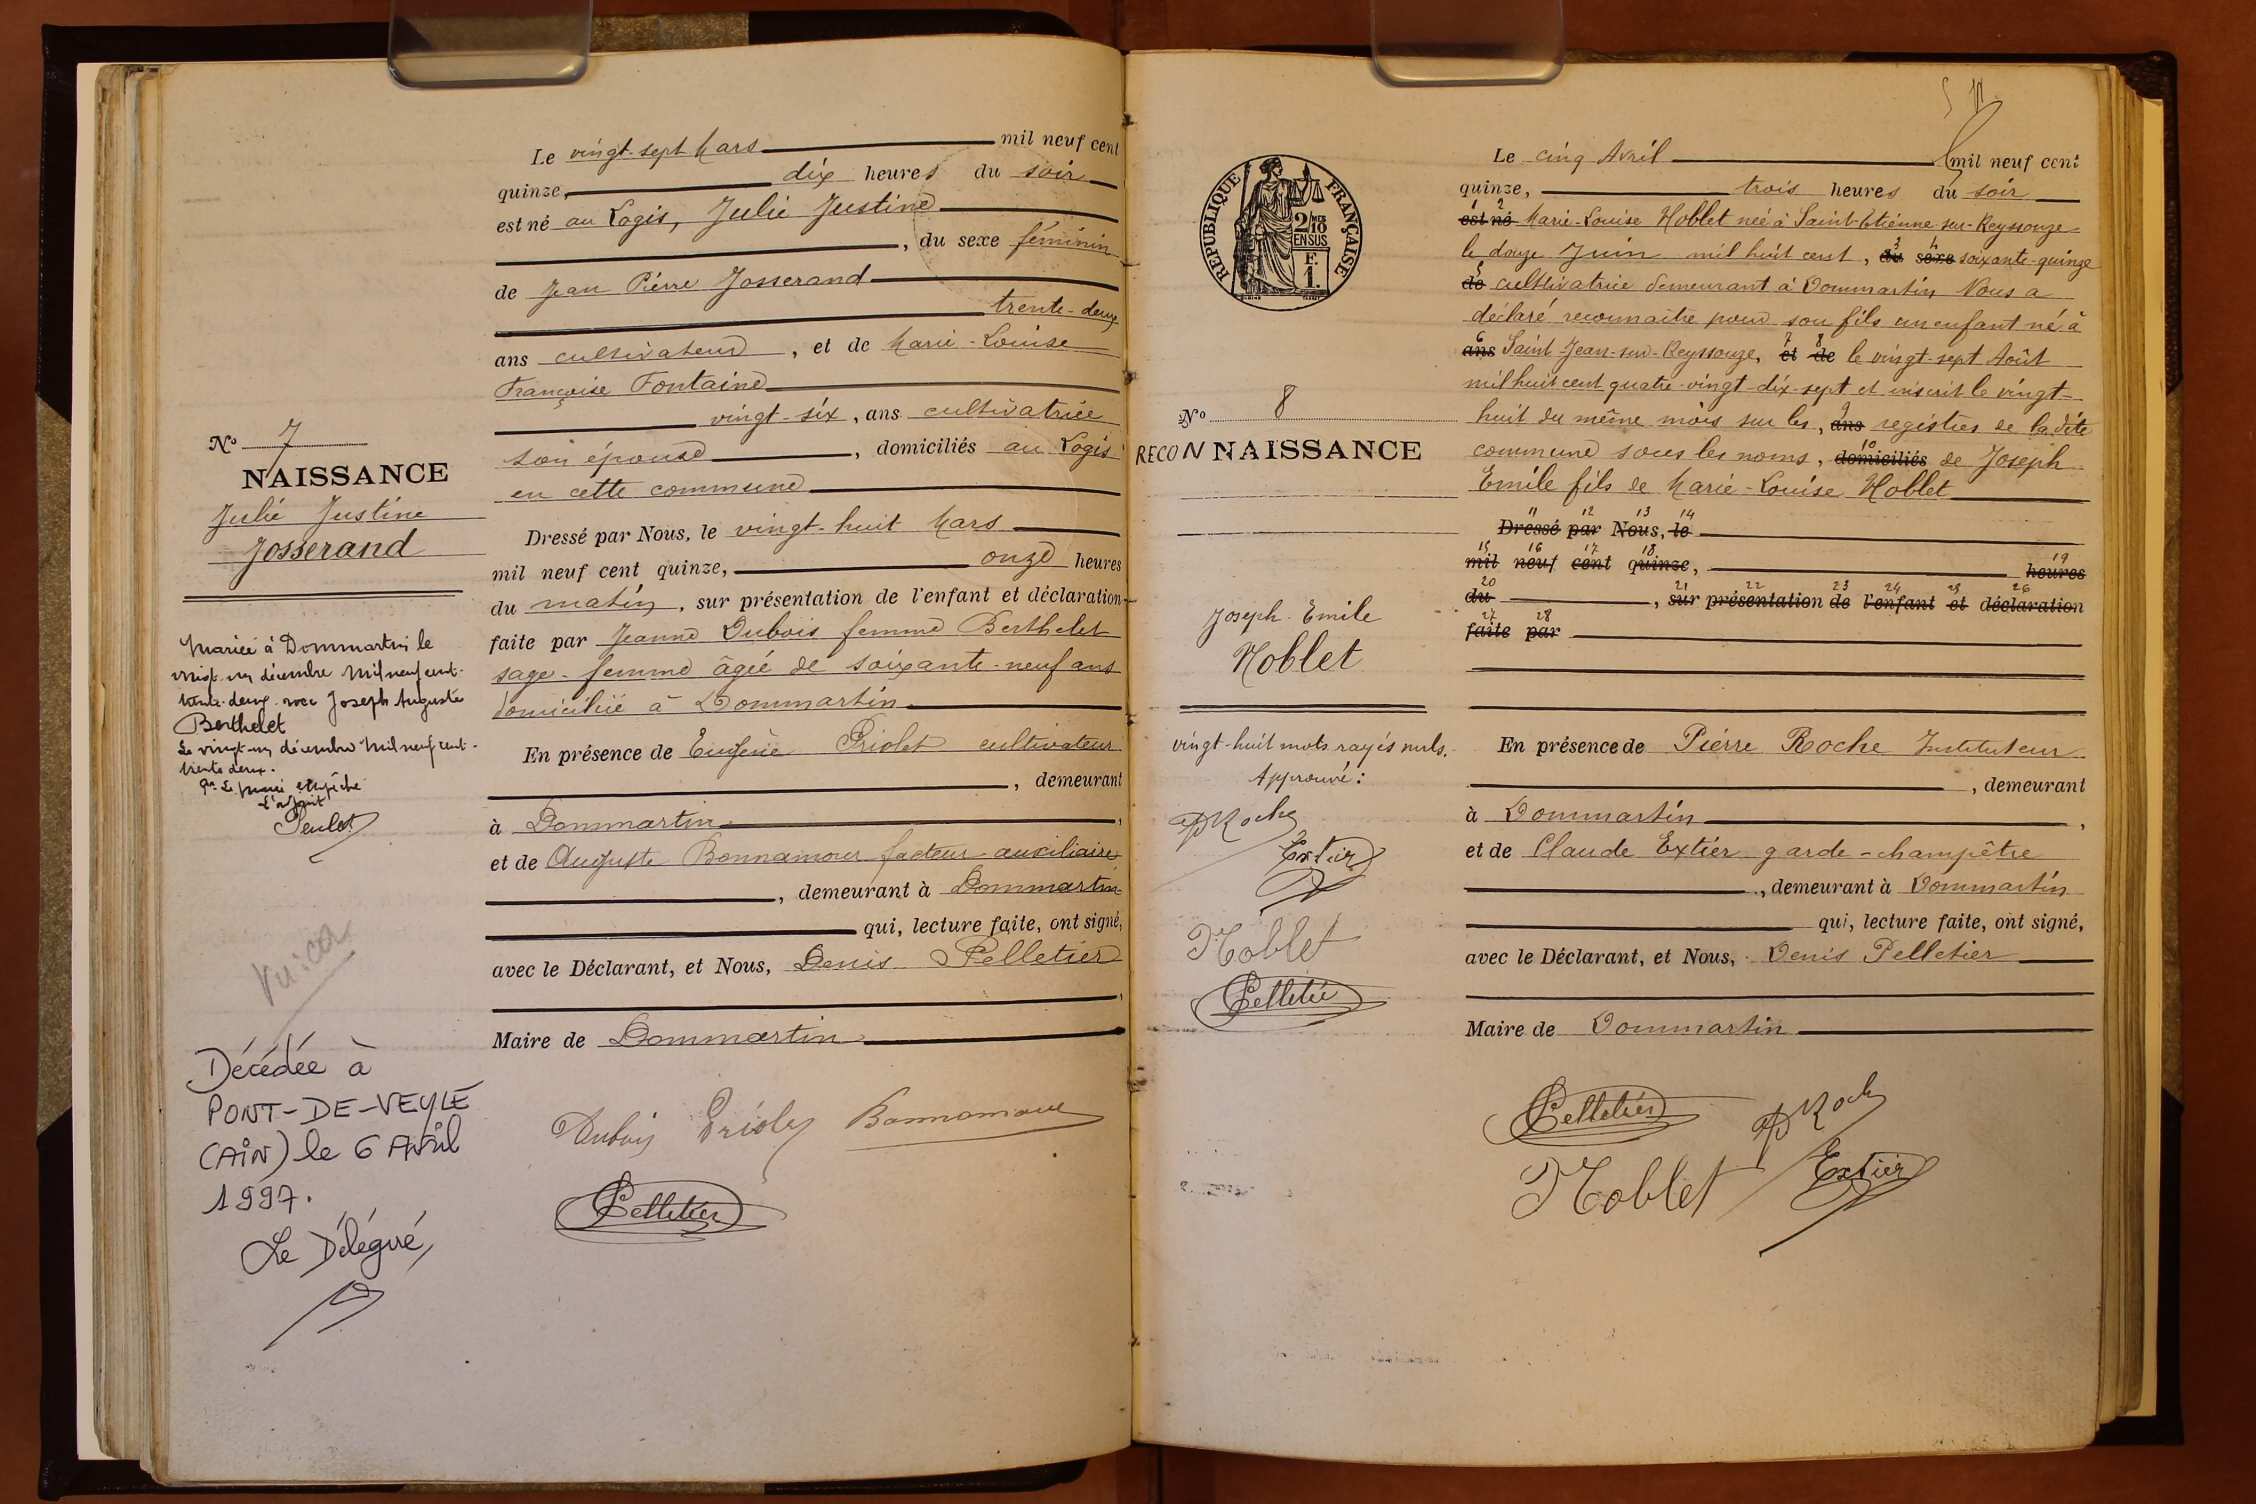 Le vingt-sept Mars mil neuf cent
quinze, dix heures du soir
est né au Logis, Julie Justine
, du sexe féminin
de Jean Pierre Josserand
trente-deux
ans cultivateur, et de Marie-Louise
Françoise Fontaine
vingt-six, ans cultivatrice
son épouse, domiciliés au Logis
en cette commune
Dressé par Nous, le vingt-huit Mars
mil neuf cent quinze, onze heures
du matin, sur présentation de l'enfant et déclaration
faite par Jeanne Dubois femme Berthelet
sage-femme âgée de soixante-neuf ans
domiciliée à Dommartin
En présence de Eugène Priolet cultivateur
, demeurant
à Dommartin,
et de Auguste Bonnamour facteur-auxiliaire
, demeurant à Dommartin
qui, lecture faite, ont signé,
avec le Déclarant, et Nous, Denis Pelletier
,
Maire de Dommartin
Dubois Priolet Bonnamour
Pelletier
No 7
NAISSANCE
Julie Justine
Josserand
Mariée à Dommartin le
vingt-un décembre mil neuf cent-
trente-deux avec Joseph Auguste
Berthelet
Le vingt-un décembre mil neuf cent-
trente deux.
Le maire empêché
L'adjoint
Vu: ca
Décédée à
PONT-DE-VEYLE
(AIN) le 6 Avril
1997.
Le Délégué,
Le cinq Avril mil neuf cent
quinze, trois heures du soir
1 2
est né Marie-Louise Noblet née à Saint-Etienne-sur-Reyssouze
3 4
le douze Juin mil huit cent, du sexe soixante-quinze
5
de cultivatrice demeurant à Dommartin Nous a
déclaré reconnaitre pour son fils un enfant né à
6 7 8
ans Saint-Jean-sur-Reyssouze, et de le vingt-sept Août
mil huit cent quatre-vingt-dix-sept et inscrit le vingt-
9
huit du même mois sur les, ans registres de ladite
10
commune sous les noms, domiciliés de Joseph
Emile fils de Marie-Louise Noblet
11 12 13 14
Dressé par Nous, le
15 16 17 18 19
mil neuf cent quinze, heures
20 21 22 23 24 25 26
du, sur présentation de l'enfant et déclaration
27 28
faite par
En présence de Pierre Roche Instituteur
, demeurant
à Dommartin,
et de Claude Extier garde-champêtre
, demeurant à Dommartin
qui, lecture faite, ont signé,
avec le Déclarant, et Nous, Denis Pelletier
Maire de Dommartin
Pelletier P Roche
Noblet Extier
RÉPUBLIQUE FRANÇAISE
2/10
EN SUS
F.
1.
No 8
RECONNAISSANCE
Joseph-Emile
Noblet
vingt-huit mots rayés nuls.
Approuvé:
P Roche
Extier
Noblet
Pelletier